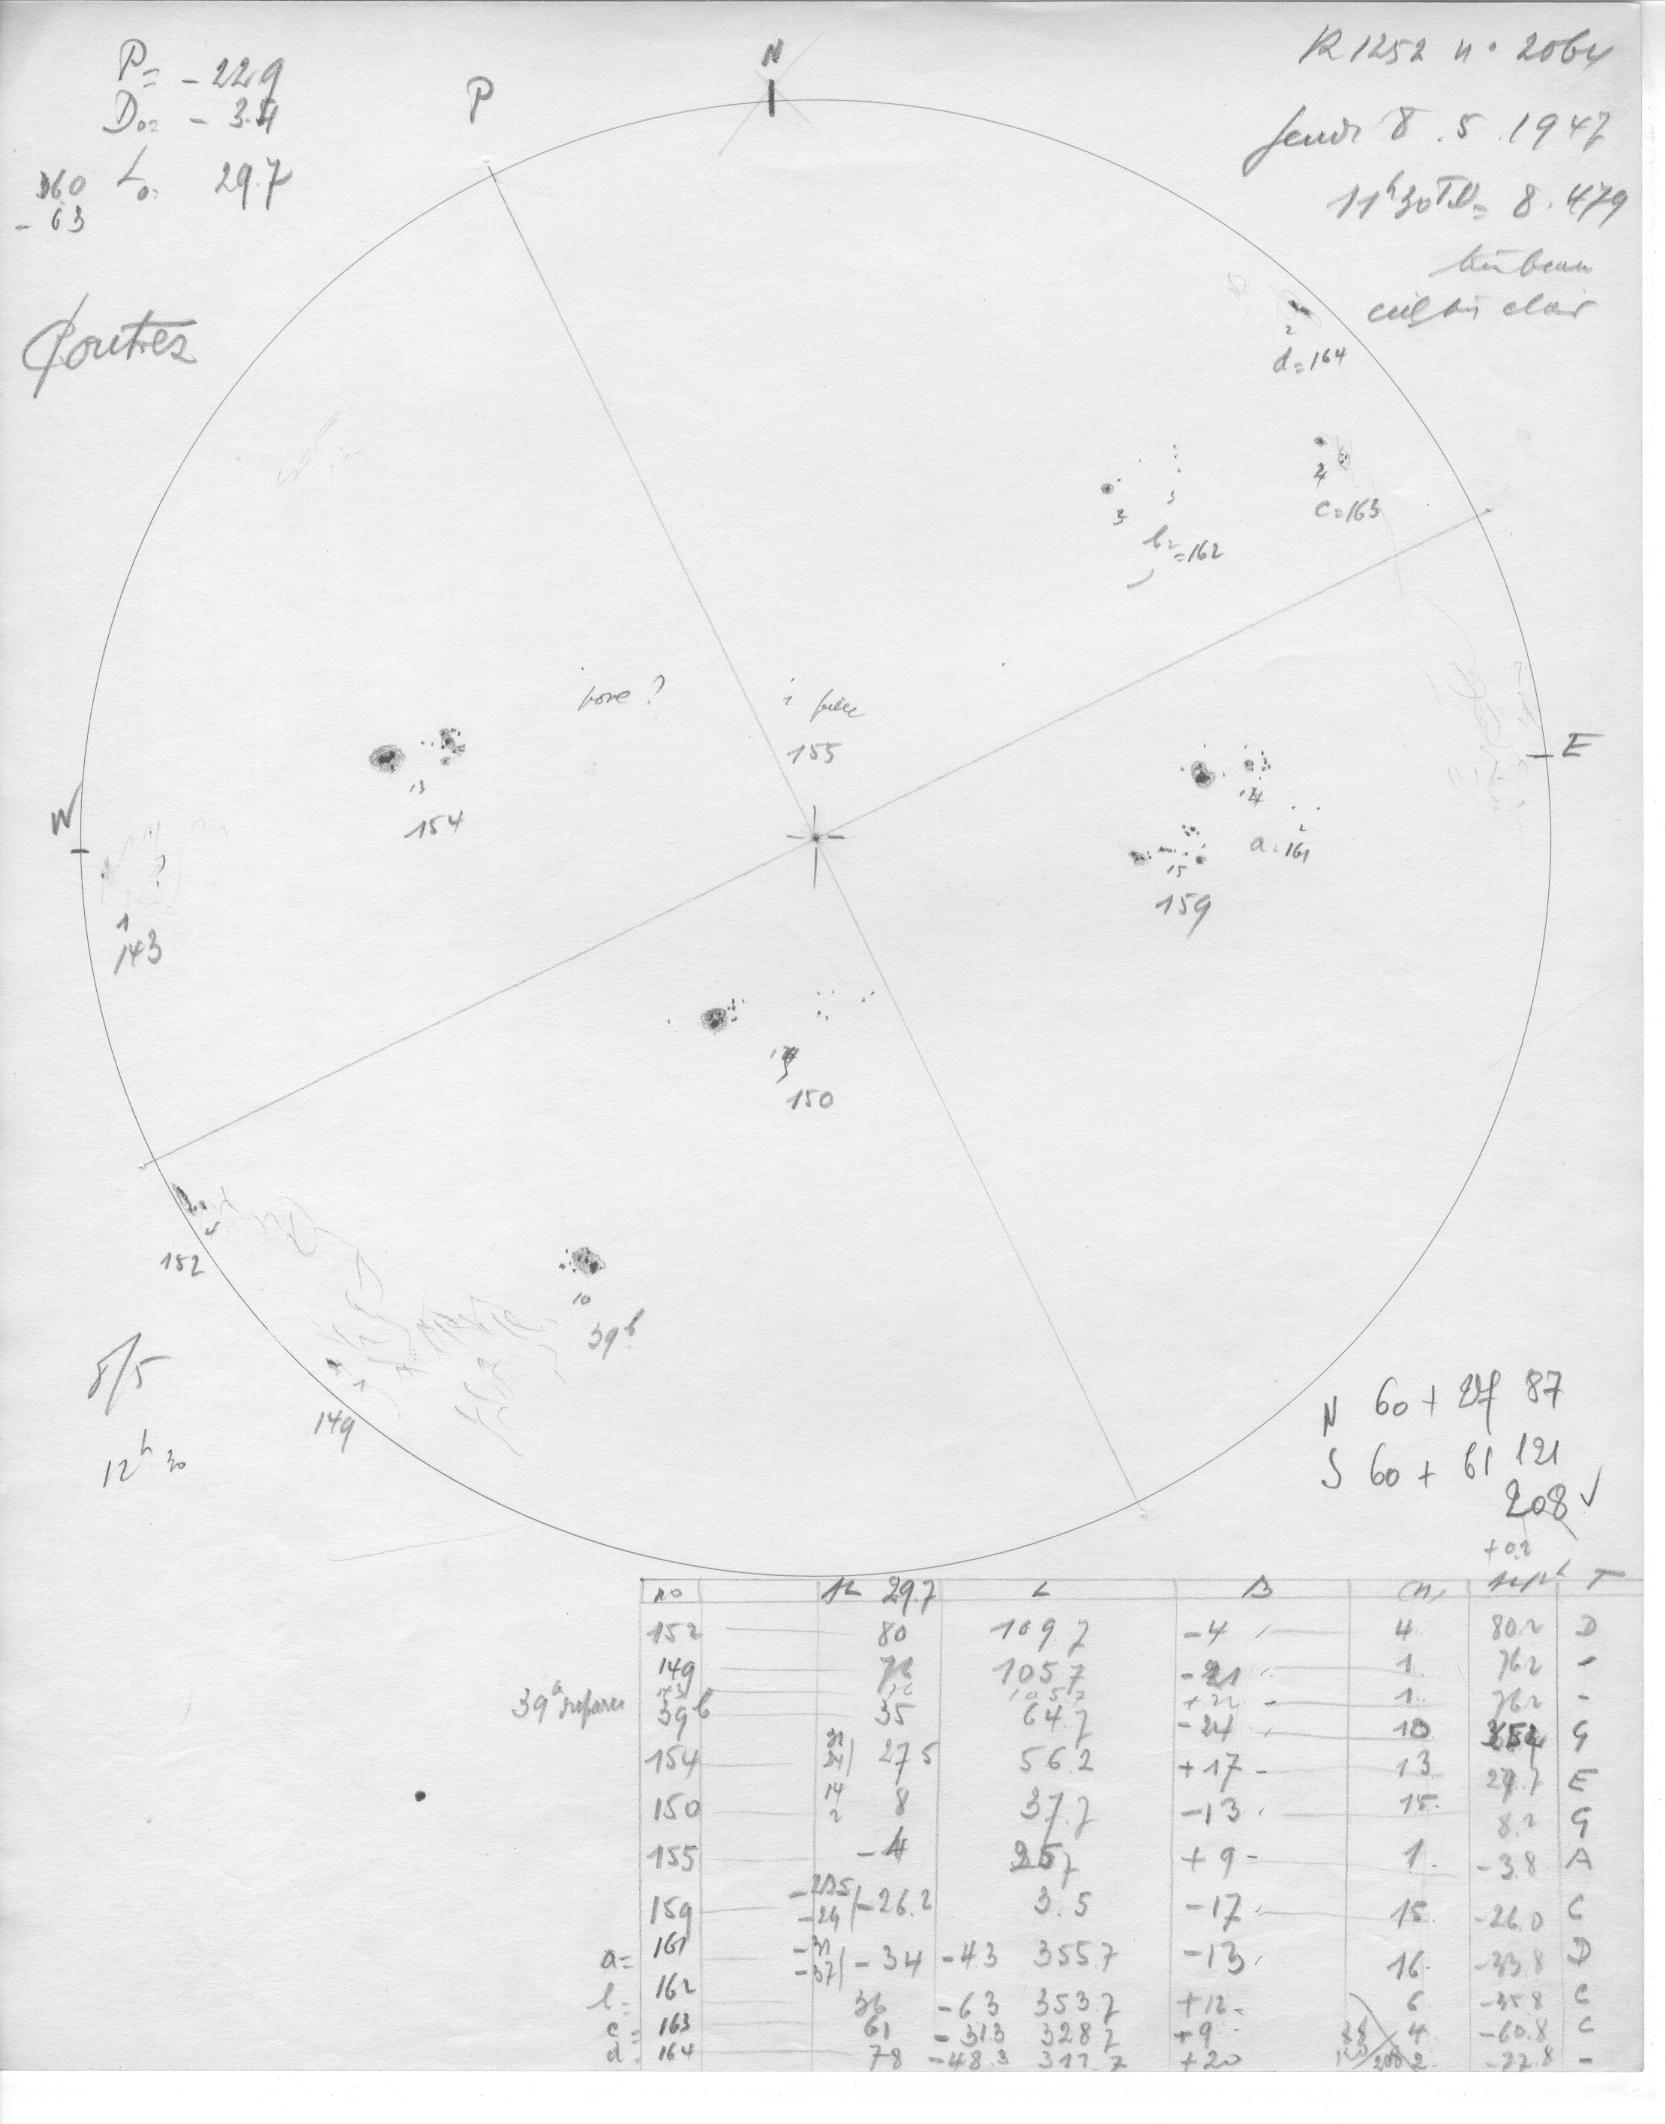 P = -22.9
D₀ = -3.4
L₀ = 29.7
360
- 63
P
N
R 1252 n° 2064
Jeudi 8.5.1947
11h30 TU = 8.479
Coutrez
2
d=164
3
3
b=162
4
c=163
pore ?
1
155
E
W
13
154
14
2
a=161
15
159
?
1
143
150
4
152
10
39b
1
149
8/5
12h30
N 60 + 27 87
S 60 + 61 121
208 ✓
+0.2
no 29.7 L B T
152 80 109.7 -4 4 80.2 D
149 76 105.7 -21 1 76.2 -
143 76 105.7 +22 1 76.2 -
39b 35 64.7 -24 10 G
154 31 24 27.5 56.2 +17 13 27.7 E
150 14 2 8 37.7 -13 15 8.2 G
155 -4 25.7 +9 1 -3.8 A
159 -29 -26.2 3.5 -17 15 -26.0 C
a= 161 -31 -37 -34 -4.3 355.7 -13 16 -33.8 D
b= 162 36 -6.3 353.7 +12 6 -35.8 C
c= 163 61 -31.3 328.7 +9 4 -60.8 C
d= 164 78 -48.3 311.7 +20 2 -77.8 -